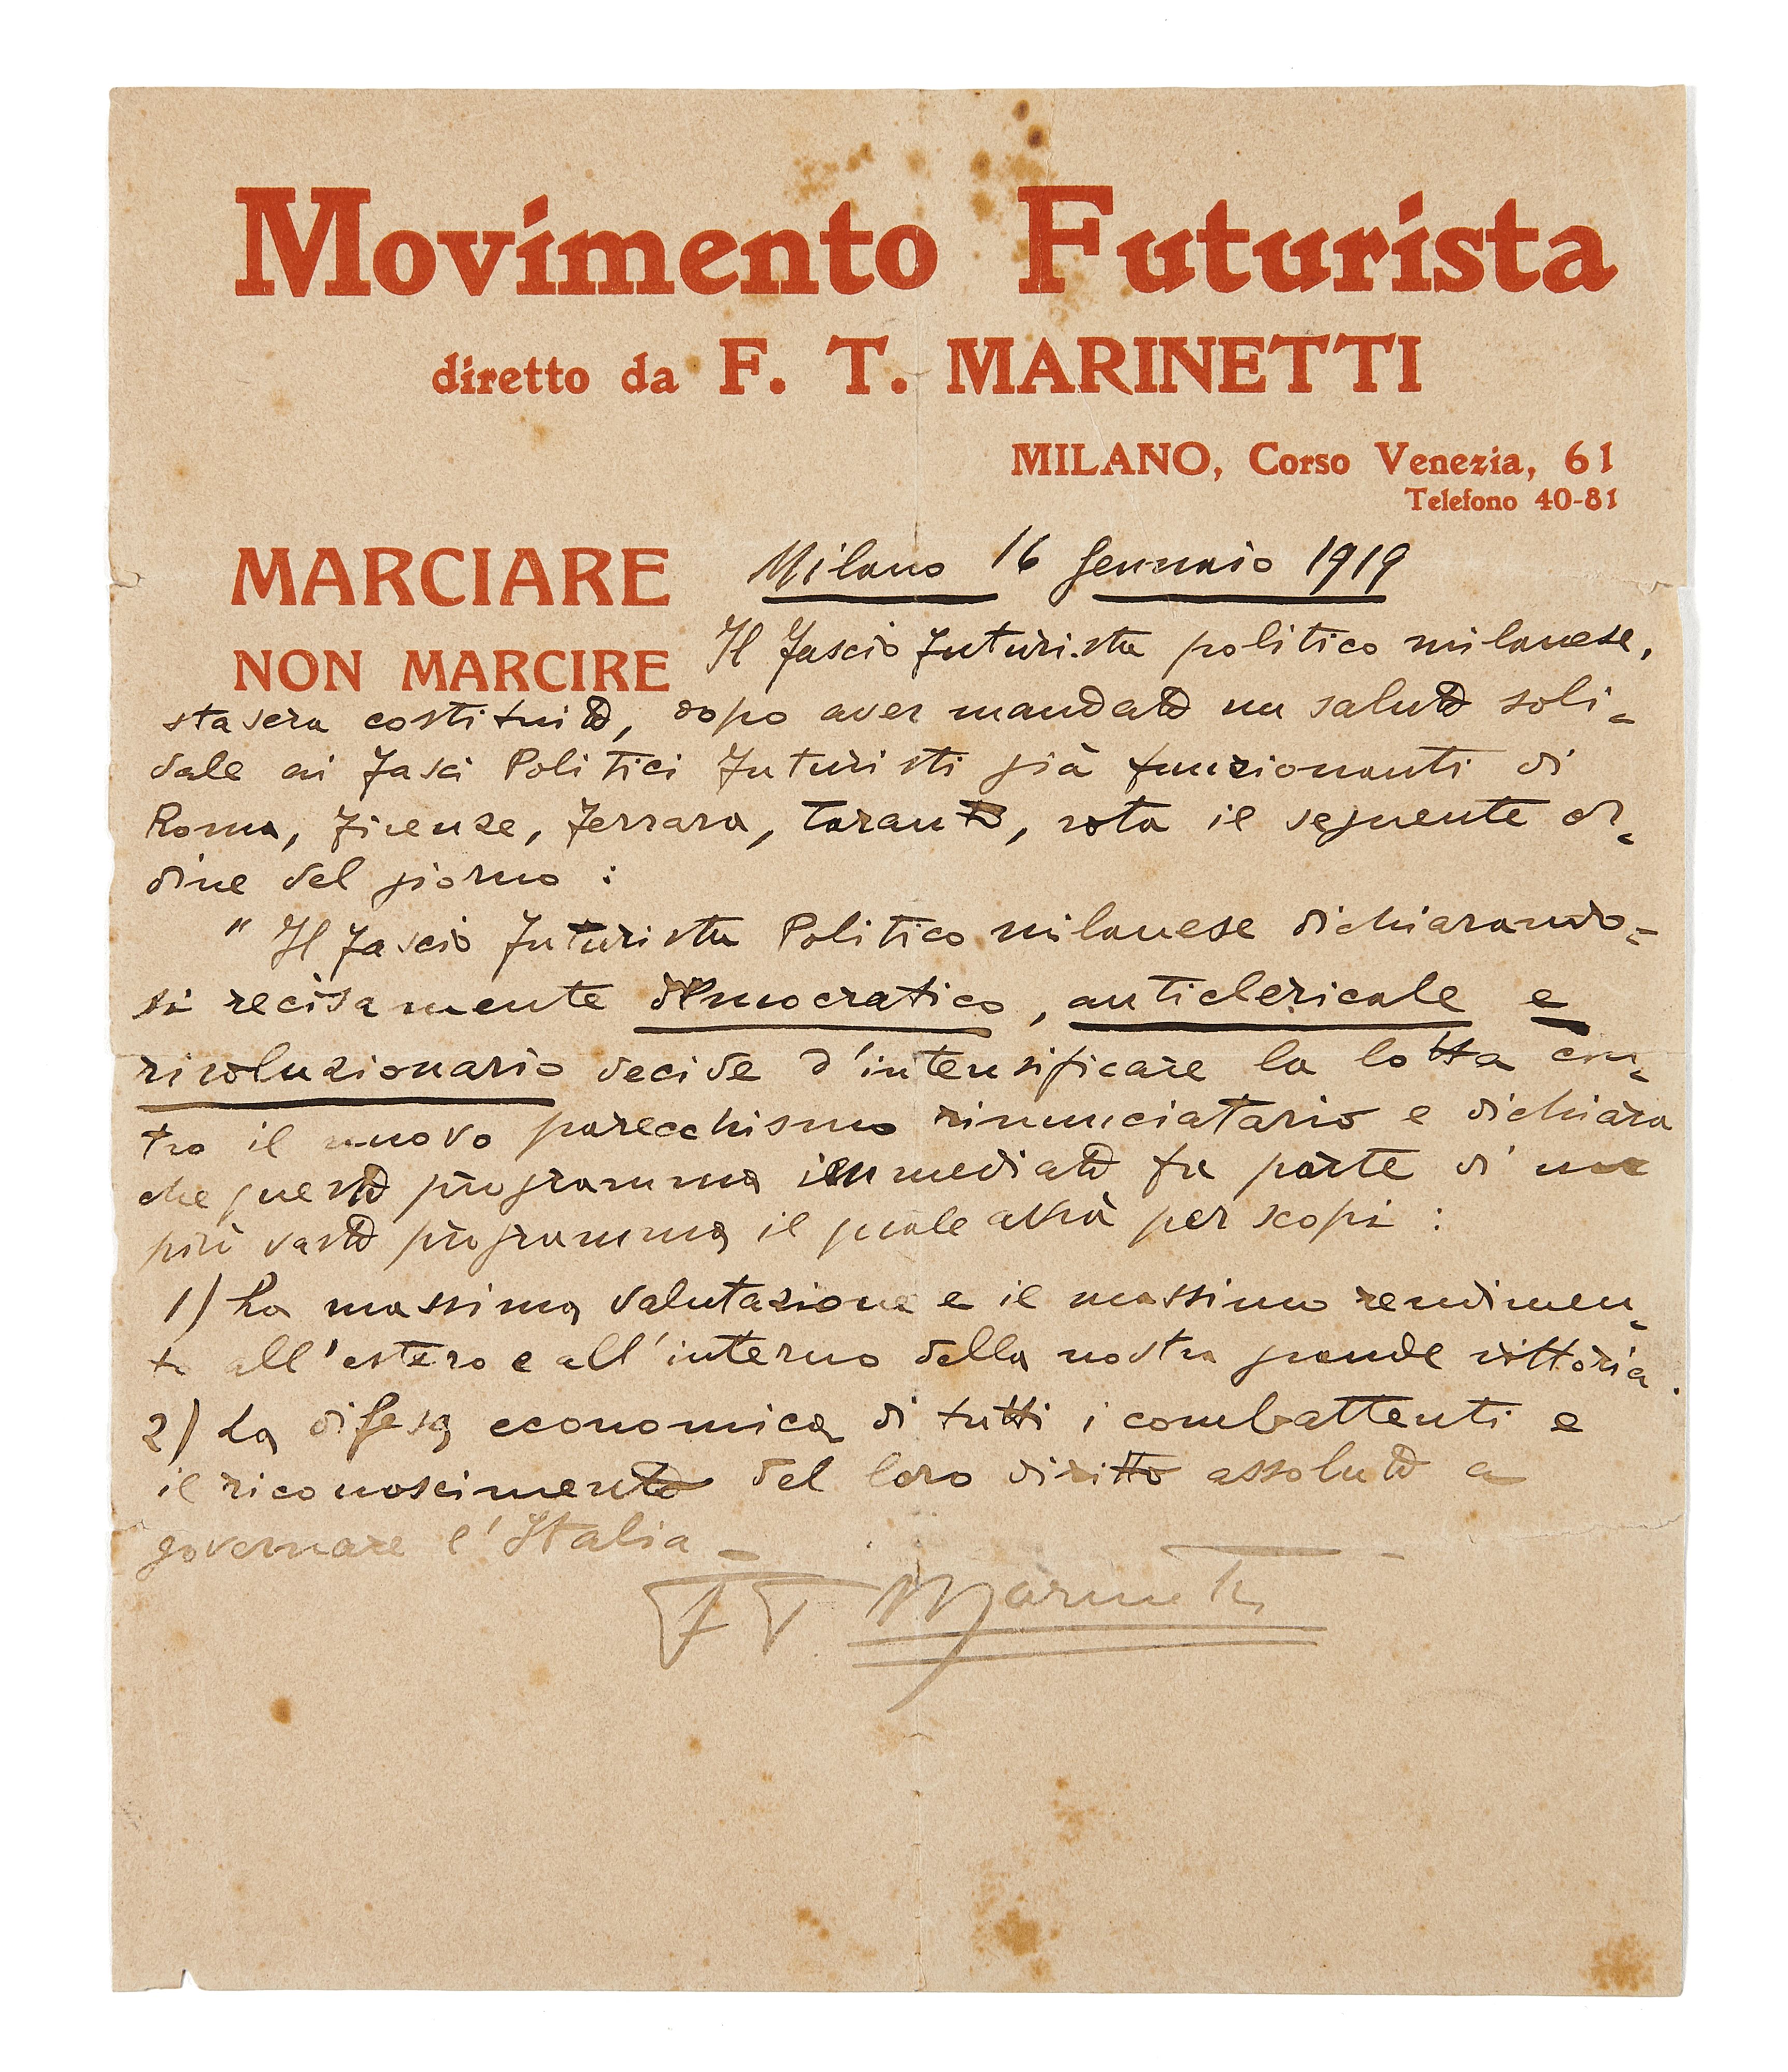 Movimento Futurista
diretto da F. T. MARINETTI
MILANO, Corso Venezia, 61
Telefono 40-81
MARCIARE
NON MARCIRE
Milano 16 Gennaio 1919
Il Fascio Futurista politico milanese,
stasera costituito, dopo aver mandato un saluto soli-
dale ai Fasci Politici Futuristi già funzionanti di
Roma, Firenze, Ferrara, Taranto, vota il seguente or-
dine del giorno :
" Il Fascio Futurista Politico milanese dichiarando-
si recisamente democratico, anticlericale e
rivoluzionario decide d'intensificare la lotta con-
tro il nuovo parecchismo rinunciatario e dichiara
che questo programma immediato fa parte di un
più vasto programma il quale avrà per scopi :
1) La massima valutazione e il massimo rendimen-
to all'estero e all'interno della nostra grande vittoria.
2) La difesa economica di tutti i combattenti e
il riconoscimento del loro diritto assoluto a
governare l'Italia -
FT Marinetti